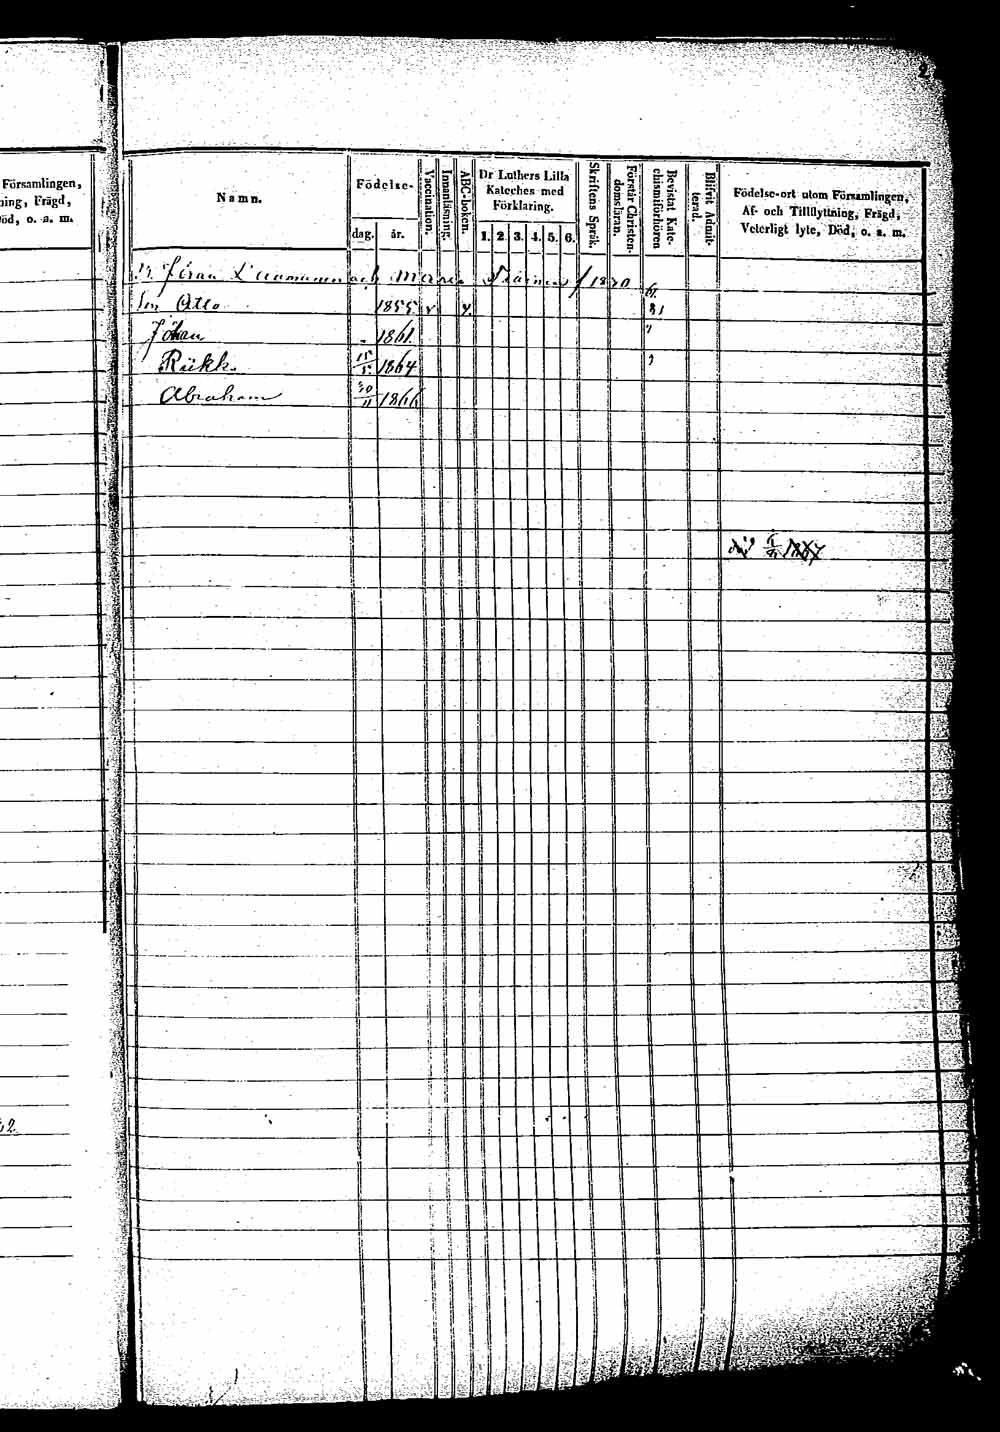 2
Församlingen,
ning, Frägd,
öd, o. a. m.
Namn.
Födelse-
dag. år.
Vaccination.
Innanläsning.
ABC-boken.
Dr Luthers Lilla
Kateches med
Förklaring.
1. 2. 3. 4. 5. 6.
Skriftens Språk.
Förstår Christen-
domsläran.
Bevistat Kate-
chismiförhören
Blifvit Admit-
terad.
Födelse-ort utom Församlingen,
Af- och Tillflyttning, Frägd,
Veterligt lyte, Död, o. a. m.
Jöran och Maria 1870
Son Otto 1855
Johan 1861
1864
Abraham 30/11 1866
död 1867